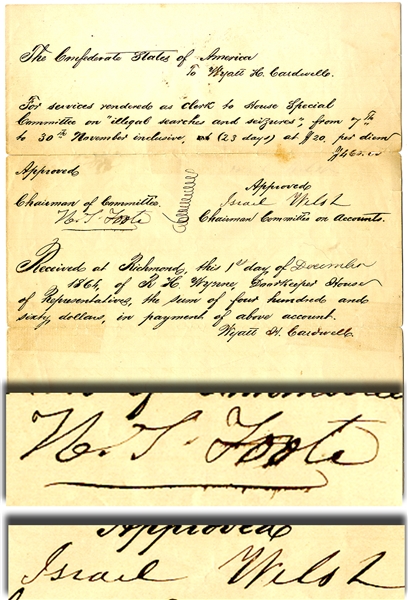 The Confederate States of America
To Wyatt H. Cardwell.
For services rendered as Clerk to House Special
Committee on "illegal searches and seizures", from 7th
to 30th November inclusive, (23 days) at $20, per diem
$460.00
Approved
Chairman of Committee.
H. S. Foote
Approved
Israel Welsh
Chairman Committee on Accounts.
Received at Richmond, this 1st day of December
1864, of R. H. Wynne, Doorkeeper House
of Representatives, the sum of four hundred and
sixty dollars, in payment of above account.
Wyatt H. Cardwell.
H. S. Foote
Approved
Israel Welsh